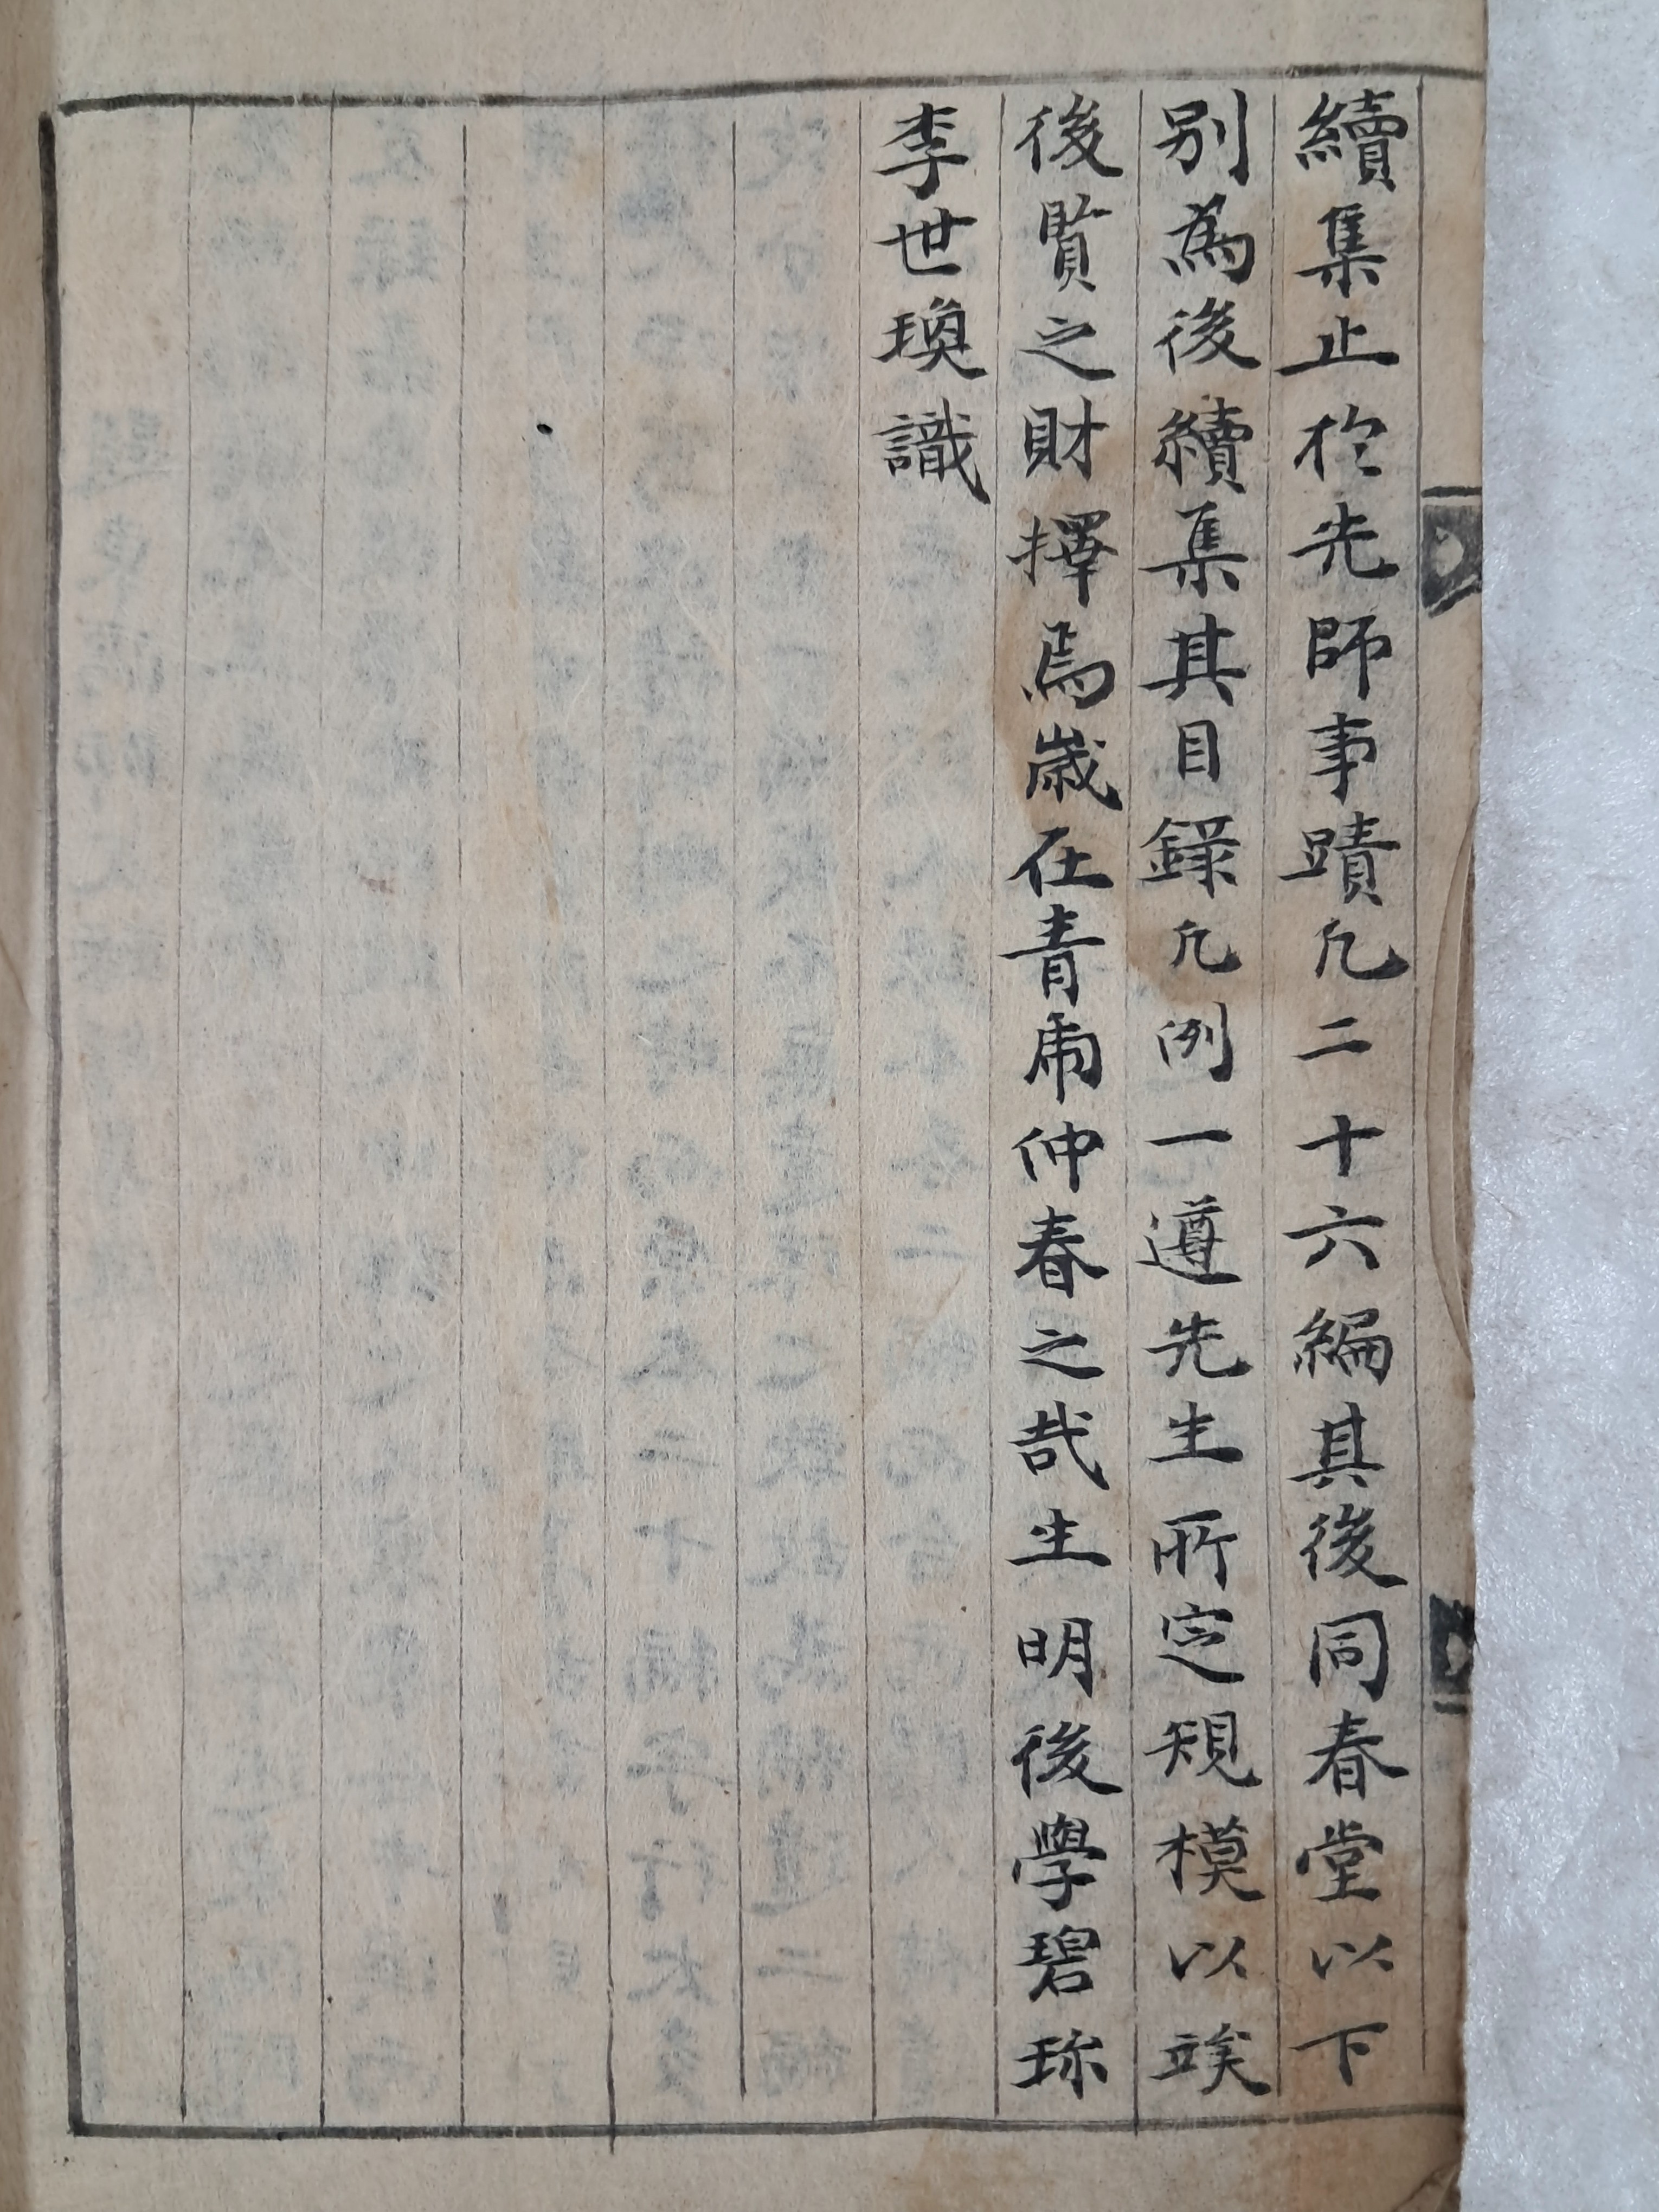 續集止於先師事蹟凡二十六編其後同春堂以下
別為後續集其目錄凡例一遵先生所定規模以竢
後賢之財擇焉歲在青虎仲春之哉生明後學碧珎
李世瑍識